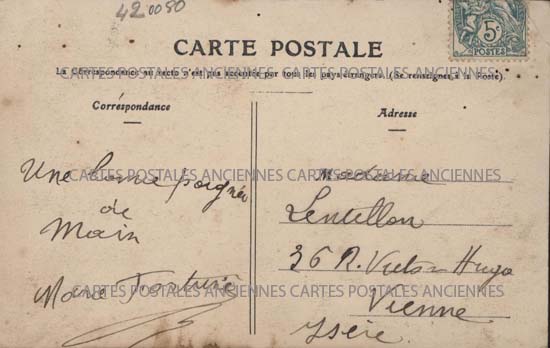 420080
5c
POSTES
CARTE POSTALE
La Correspondance au recto n'est pas acceptée par tous les pays étrangers. (Se renseigner à la Poste).
CARTES POSTALES ANCIENNES CARTES POSTALES ANCIENNES
Correspondance
Adresse
Une bonne poignée
de
Main
Marie
Madame
Lentellon
36 R. Victor Hugo
Vienne
Isère.
CARTES POSTALES ANCIENNES CARTES POSTALES ANCIENNES
CARTES POSTALES ANCIENNES CARTES POSTALES ANCIENNES